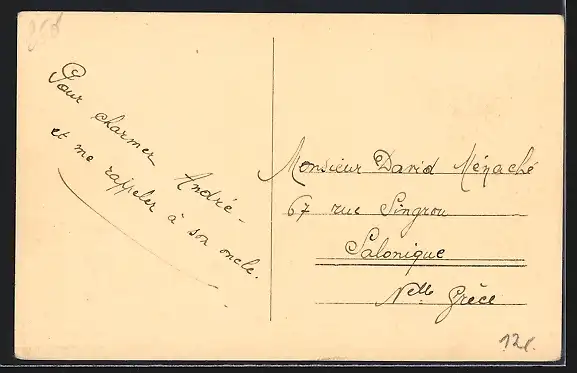 Pour charmer André -
et me rappeler à son oncle.
Monsieur David Ménaché
67 rue Singrou
Salonique
Nelle Grèce
12.